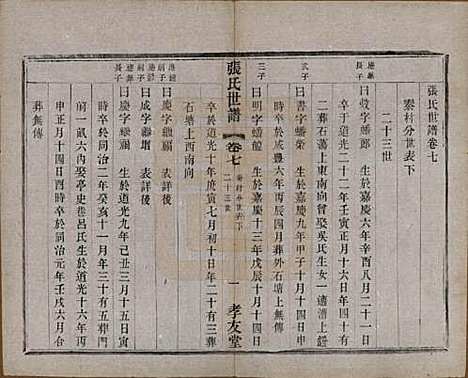 張氏世譜卷七
寨村分世表下
二十三世
曰致字蟠郎　生於嘉慶六年辛酉八月二十一日
卒於道光二十二年壬寅正月十六日
葬石蕩上東南向曾娶吳氏生女一適
曰書字蟠榮　生於嘉慶九年甲子十月十四日
時卒於咸豐六年丙辰四月葬外石塘上無傳
曰明字蟠龍　生於嘉慶十三年戊辰十月十四日
張氏世譜
卷七
寨村分世表下
二十三世
一
孝友堂
時卒於道光十年庚寅七月初十日年二十有三葬
石塘上西南向
曰慶字繼福　表詳後
曰成字繼嗣　表詳後
曰慶字繼福　生於道光九年己丑三月十一日
時卒於同治二年癸亥十一月年三十有五葬
前一畝六內娶亭史巷呂氏生於道光十六年丙
申正月十四日酉時卒於同治元年壬戌六月合
葬無傳
長子
次子
三子
長子